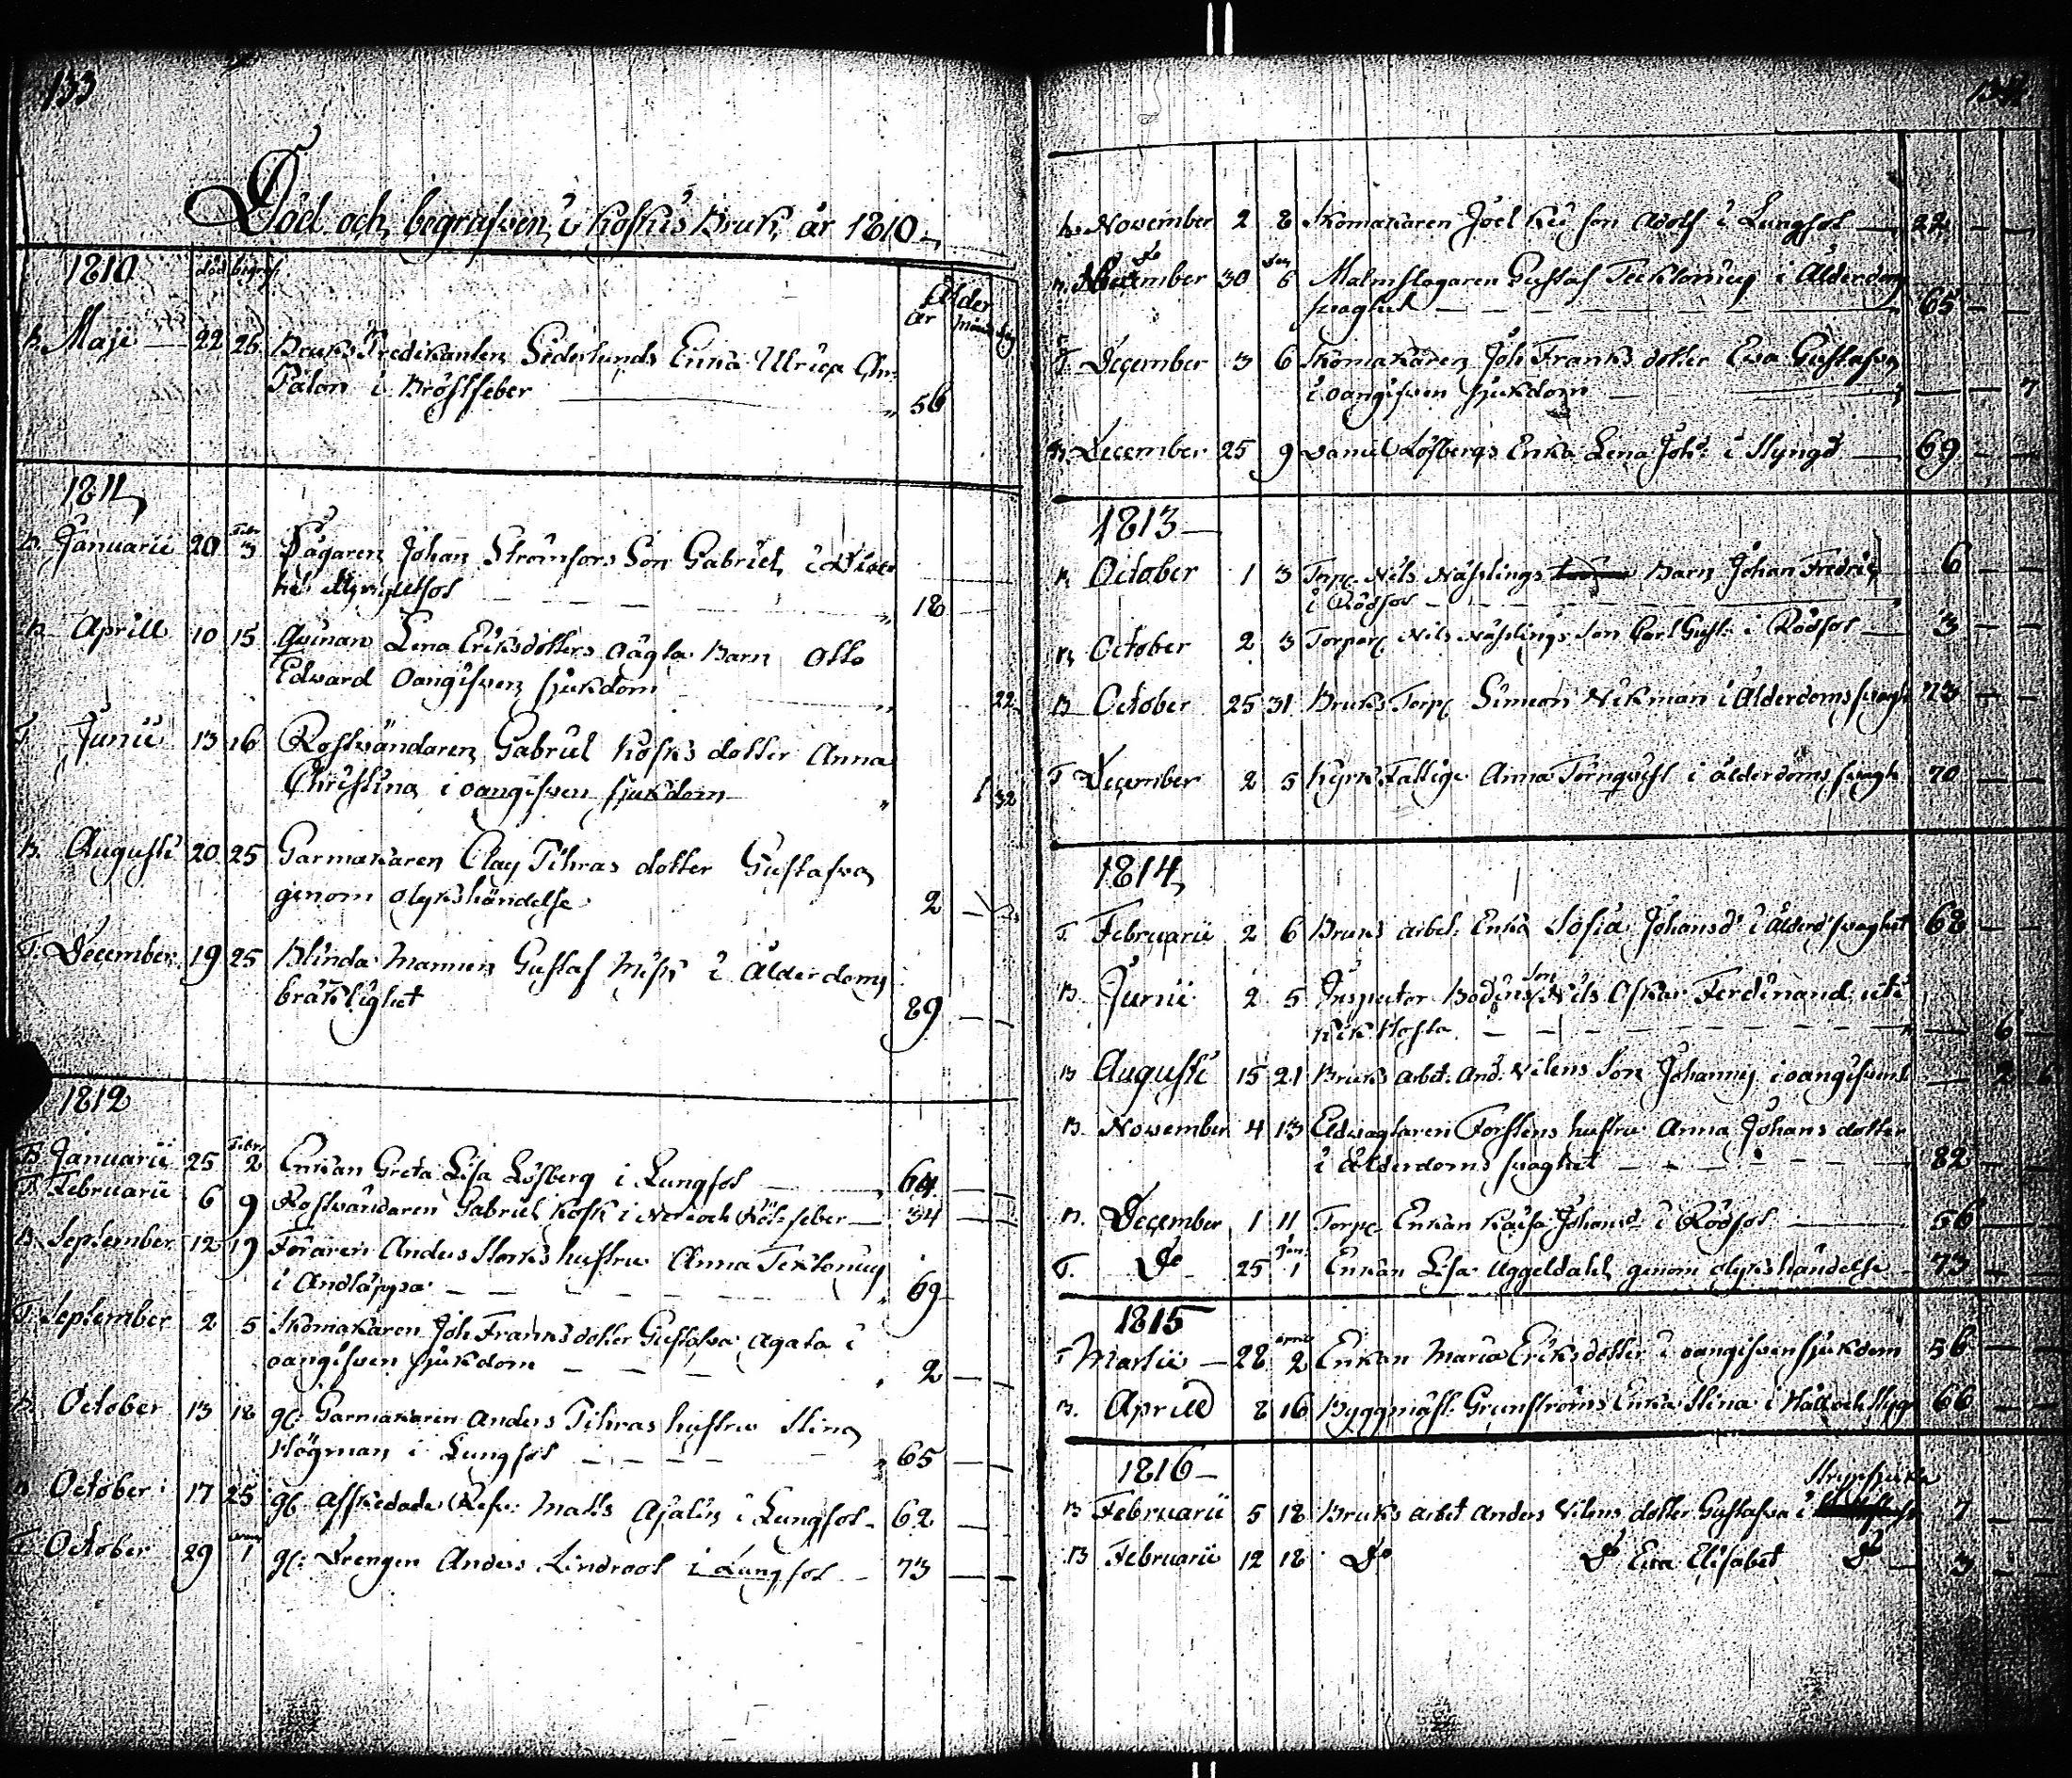 133
Död och begrafven i Koskis Bruk, år 1810
1810 död begraf. Ålder
år mån dag
B. Maji 22 26 Bruks Predikanten Söderlunds Enka Ulrica
Palån i Bröstfeber 56
1811
B. Januarii 20 Febr 3 Sågaren Johan Strömfors Son Gabriel
18
B. Aprill 10 15 Qvinan Lena Eriksdotters oägta Barn Otto
Edvard oangifven sjukdom 22
T. Junii 13 16 Rostvändaren Gabriel Kosks dotter Anna
Christina i oangifven sjukdom 1 32
B. Augusti 20 25 Garmakaren Clas Tihras dotter Gustafva
genom olykshändelse 2
T. December 19 25 Blinda Mannen Gustaf Misk i Ålderdoms
bräklighet 89
1812
B. Januarii 25 Febr 2 Enkan Greta Lisa Löfberg i Lungsot 64
T. Februarii 6 9 Rostvändaren Gabriel Kosk i Nerv och Röt-feber 34
B. September 12 19 Föraren Anders Storks hustru Anna Tektonius
i Andtäppa 69
T. September 2 5 Skomakaren Joh Franks dotter Gustafva Agata i
oangifven sjukdom 2
B. October 13 18 gl: Garmakaren Anders Tihras hustru Stina
Högman i Lungsot 65
B October 17 25 gl: Afskedade Matts Ajalin i Lungsot 62
T October 29 1 gl: Drengen Anders Lindroos i Lungsot 73
134
B. November 2 8 Skomakaren Joel son Adolf i Lungsot 22
B. do 30 Dec 6 Malmslagaren Gustaf Tecktonius i Ålderdoms
svaghet 65
T. December 3 6 Skomakaren Joh Franks dotter Eva Gustafva
i oangifven sjukdom 7
B. December 25 9 Daniel Löfbergs Enka Lena Johs: i Styngs 69
1813
B. October 1 3 Torp: Nils Näslings Barn Johan Fredric 6
i Rödsot
B. October 2 3 Torpar: Nils Näslings son Carl Gust: i Rödsot 3
B October 25 31 Bruks Torp: Simeon Wikman i Ålderdoms svagh 73
T December 2 5 Kyrk Fattige Anna Törnqvist i ålderdoms svagh 70
1814
T. Februarii 2 6 Bruks arbet: Enka Sofia Johansd: i Ålderd: svaghet 68
B. Junii 2 5 Inspector Bodins son Nils Oskar Ferdinand uti
Kik Hosta 6
B Augusti 15 21 Bruks arbet: And: Vilens Son Johannes i oangifven 2
B. November 4 13 Eldvaktaren Forstens hustru Anna Johans dotter
i Ålderdoms svaghet 82
B. December 1 11 Torp: Enkan Kaisa Johansd: i Rödsot 56
T. do 25 Jan: 1 Enkan Lisa Aggeldahl genom olyks händelse 73
1815
T Martii 28 April 2 Enkan Maria Eriksdotter i oangifven sjukdom 56
B. Aprill 8 16 Byggmäst: Grunströms Enka Stina i Håll och Styg 66
1816
B Februarii 5 18 Bruks arbet Anders Vilens dotter Gustafva i Strypsjuka 7
B Februarii 12 18 do do Eva Elisabet do 3